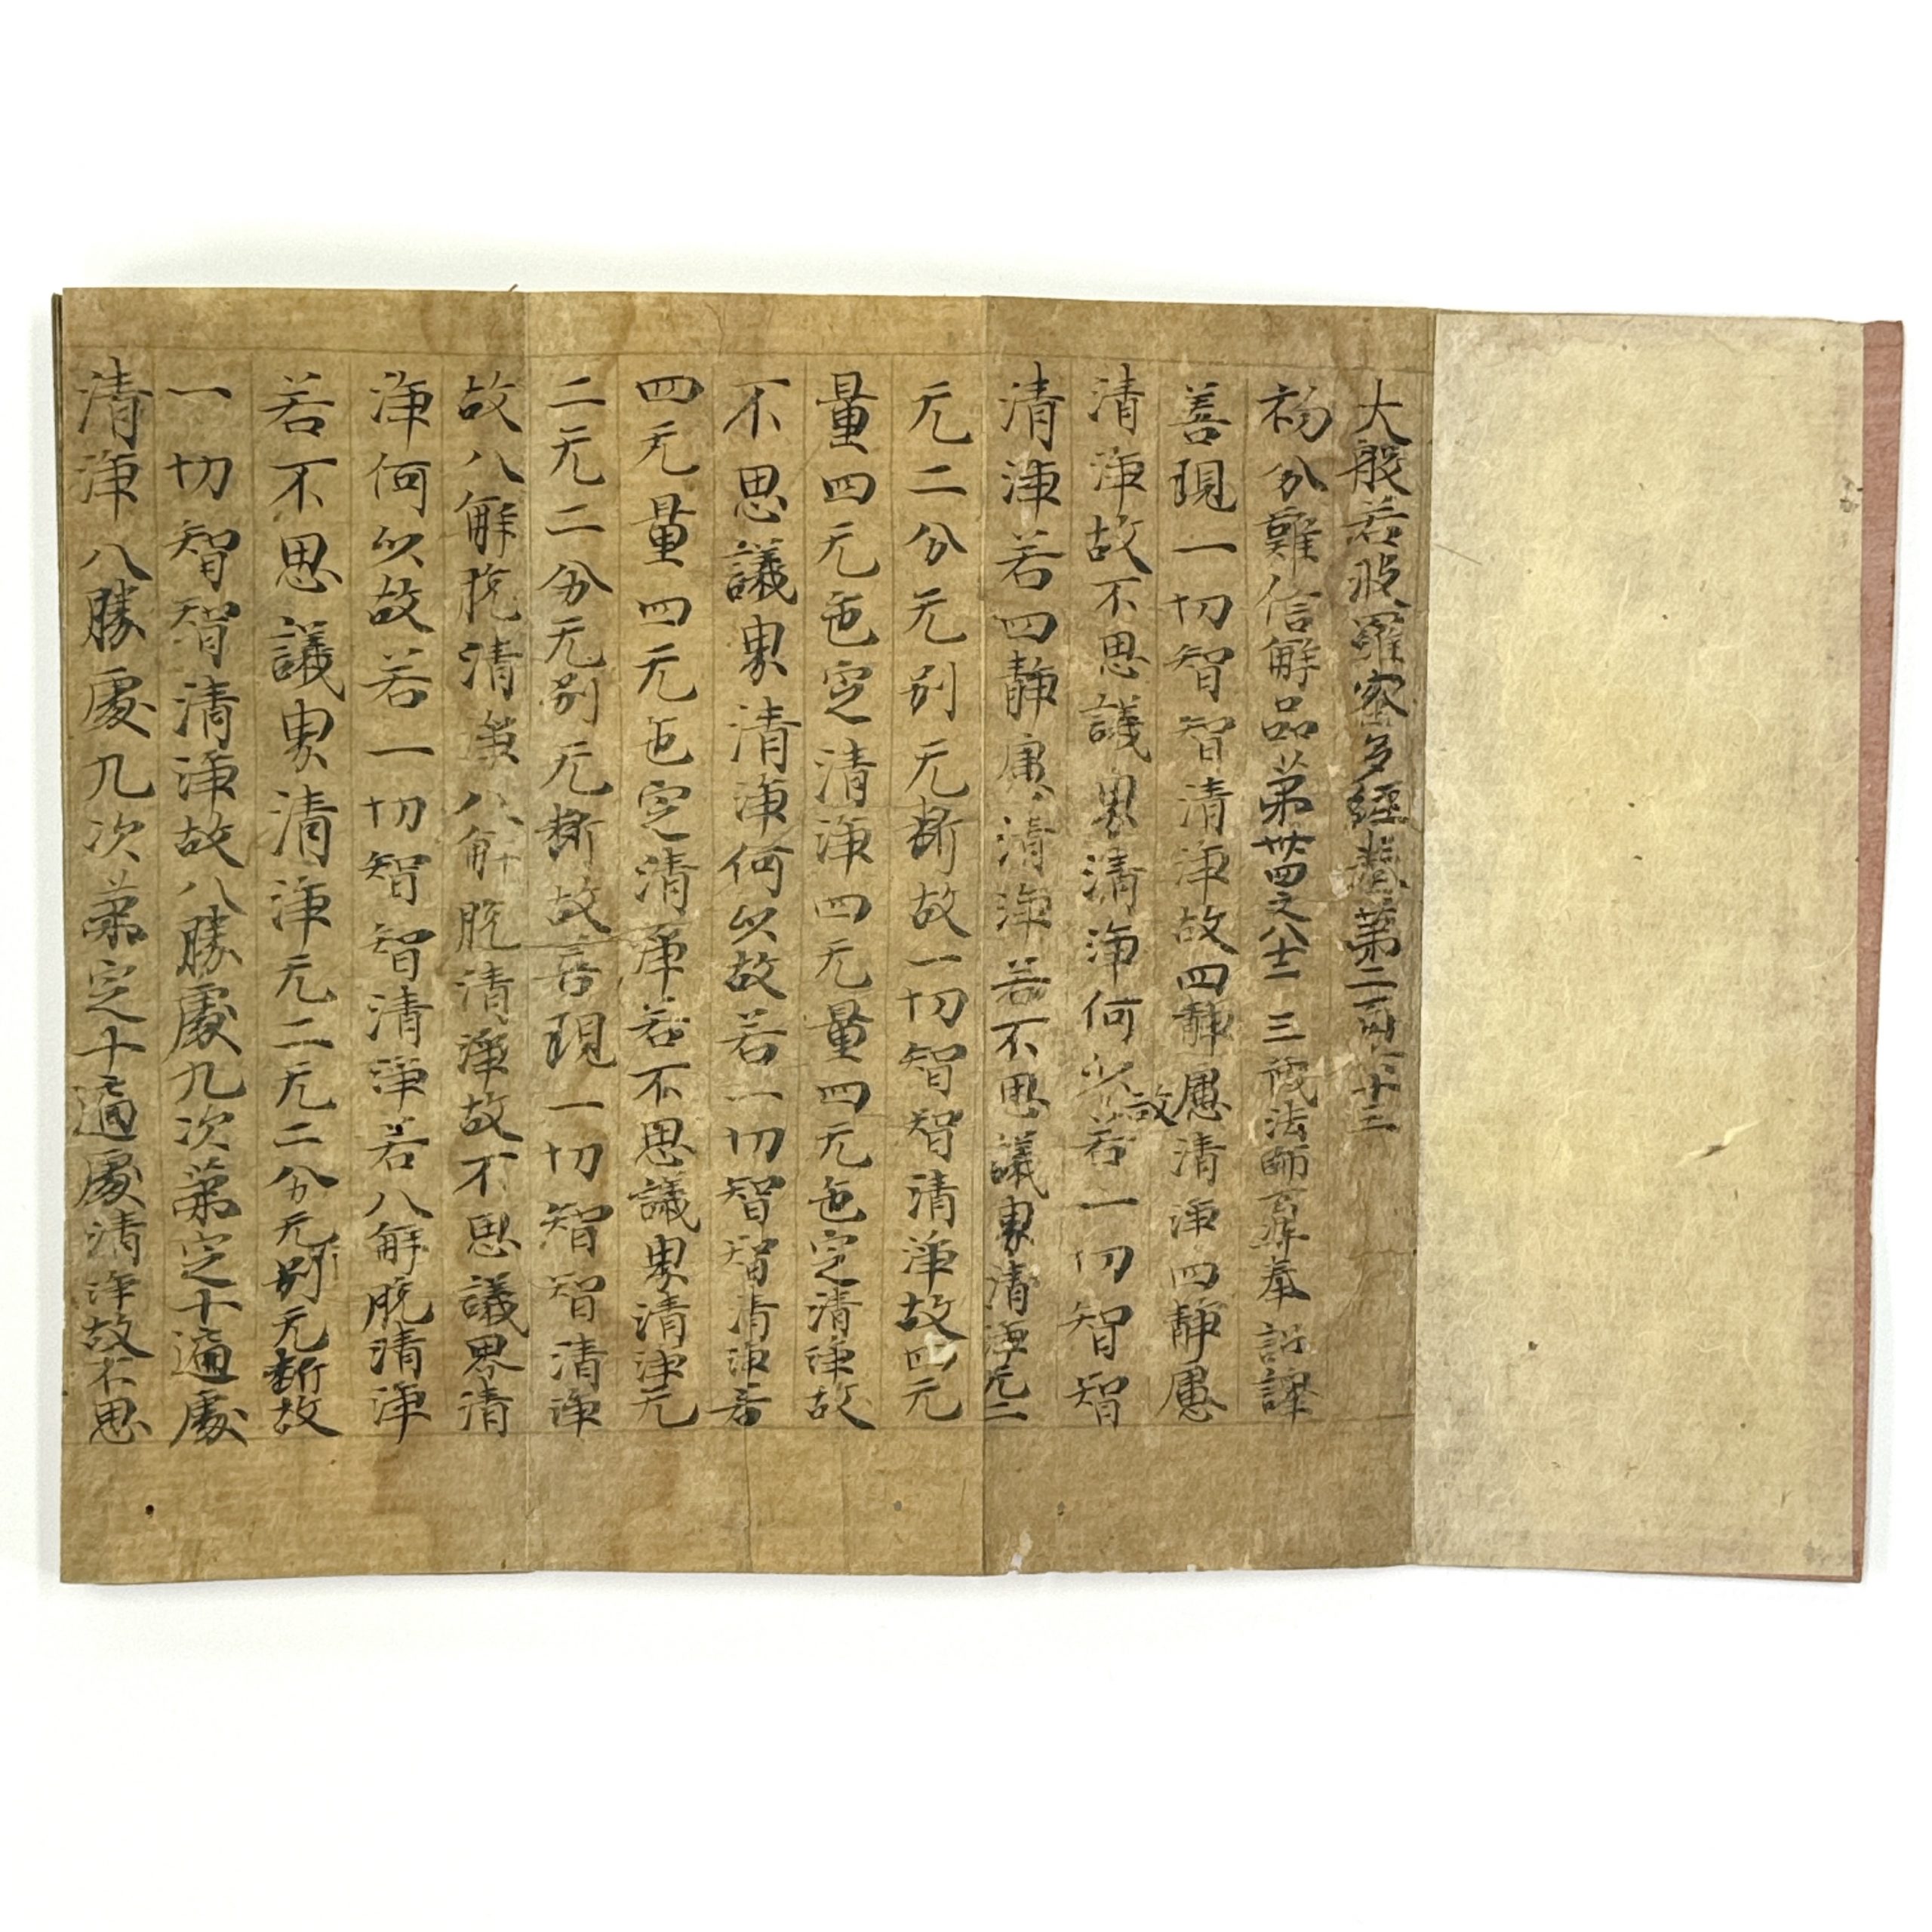 大般若波羅蜜多經卷第二百六十三
初分難信解品第卅四之八十二 三藏法師玄奘奉 詔譯
善現一切智智清淨故四靜慮清淨四靜慮
清淨故不思議界清淨何以故若一切智智
清淨若四靜慮清淨若不思議界清淨无二
无二分无別无断故一切智智清淨故四无
量四无色定清淨四无量四无色定清淨故
不思議界清淨何以故若一切智智清淨若
四无量四无色定清淨若不思議界清淨无
二无二分无別无断故善現一切智智清淨
故八解脫清淨八解脫清淨故不思議界清
淨何以故若一切智智清淨若八解脫清淨
若不思議界清淨无二无二分无別无断故
一切智智清淨故八勝處九次第定十遍處
清淨八勝處九次第定十遍處清淨故不思